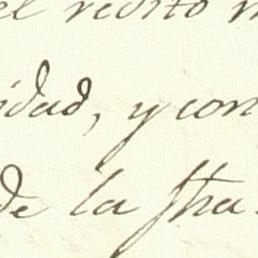 el redito
idad, y con
de la fha